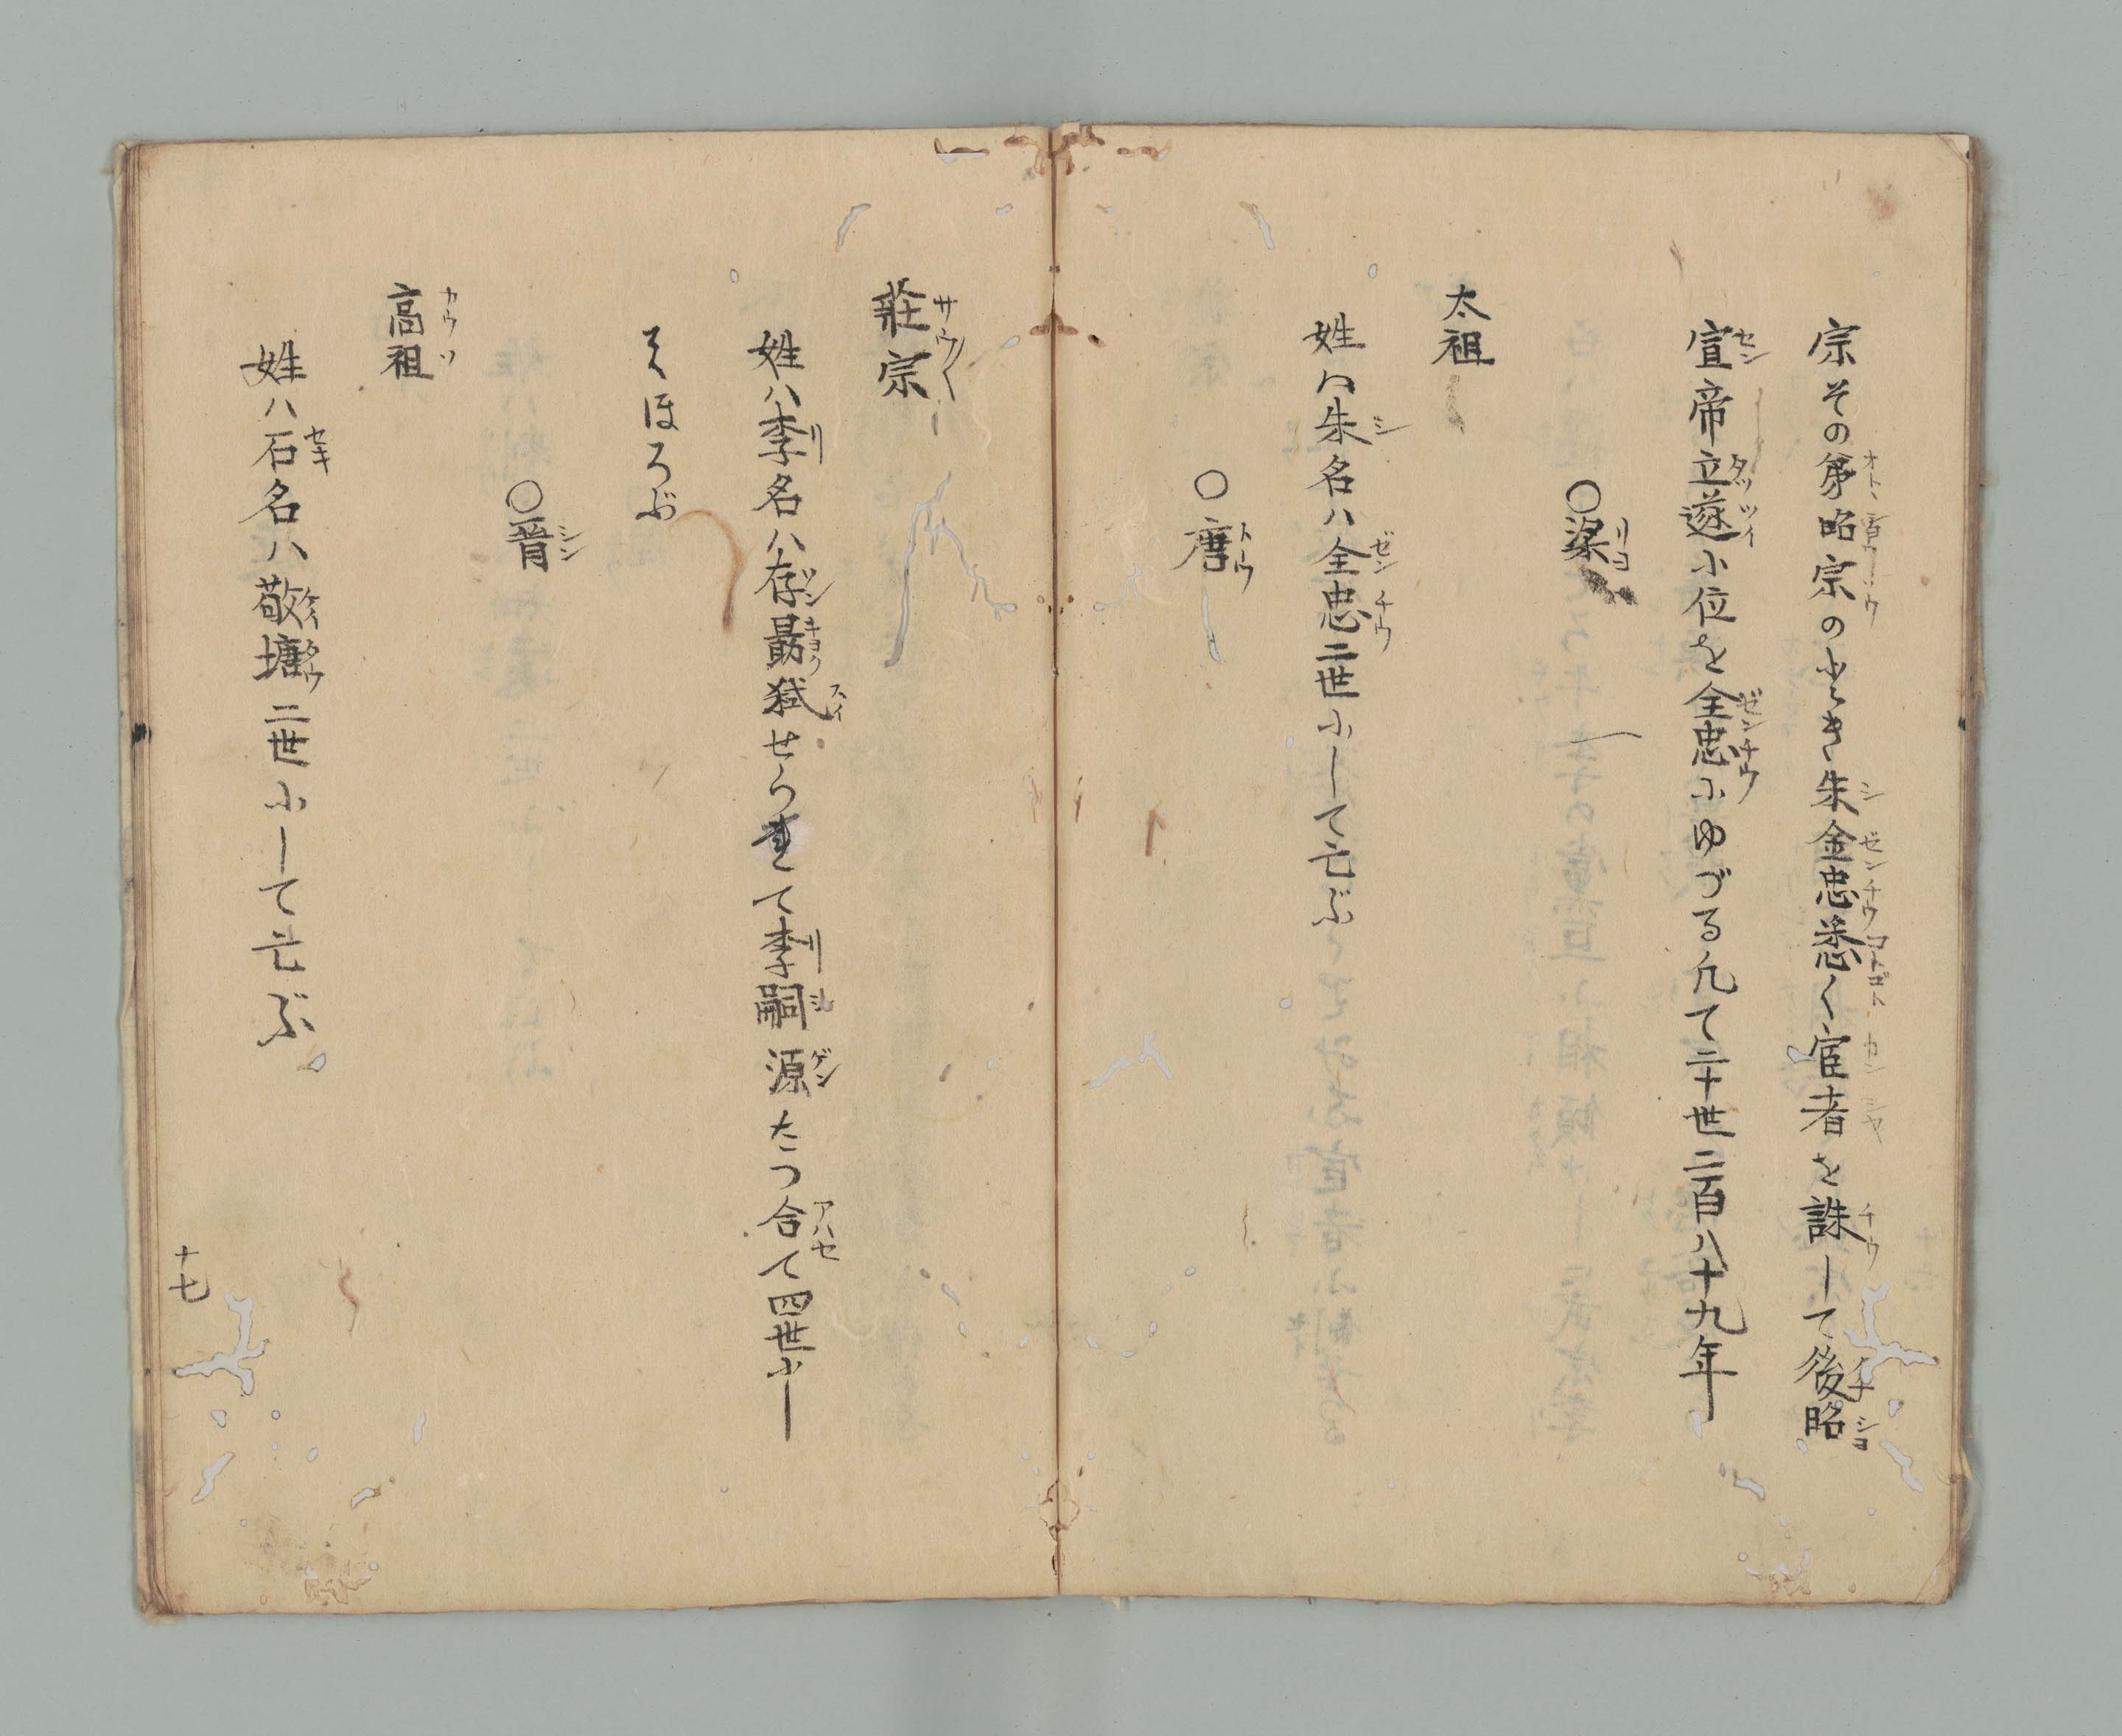 宗その弟昭宗のとき朱金忠悉く宦者を誅して後昭
宣帝立遂に位を全忠にゆづる凡て二十世二百八十九年
〇梁
太祖
姓は朱名ハ全忠二世にして亡ぶ
〇唐
荘宗
姓ハ李名ハ存勗弑せられて李嗣源たつ合て四世にし
てほろぶ
〇晋
高祖
姓ハ石名ハ敬塘二世にして亡ぶ
十七